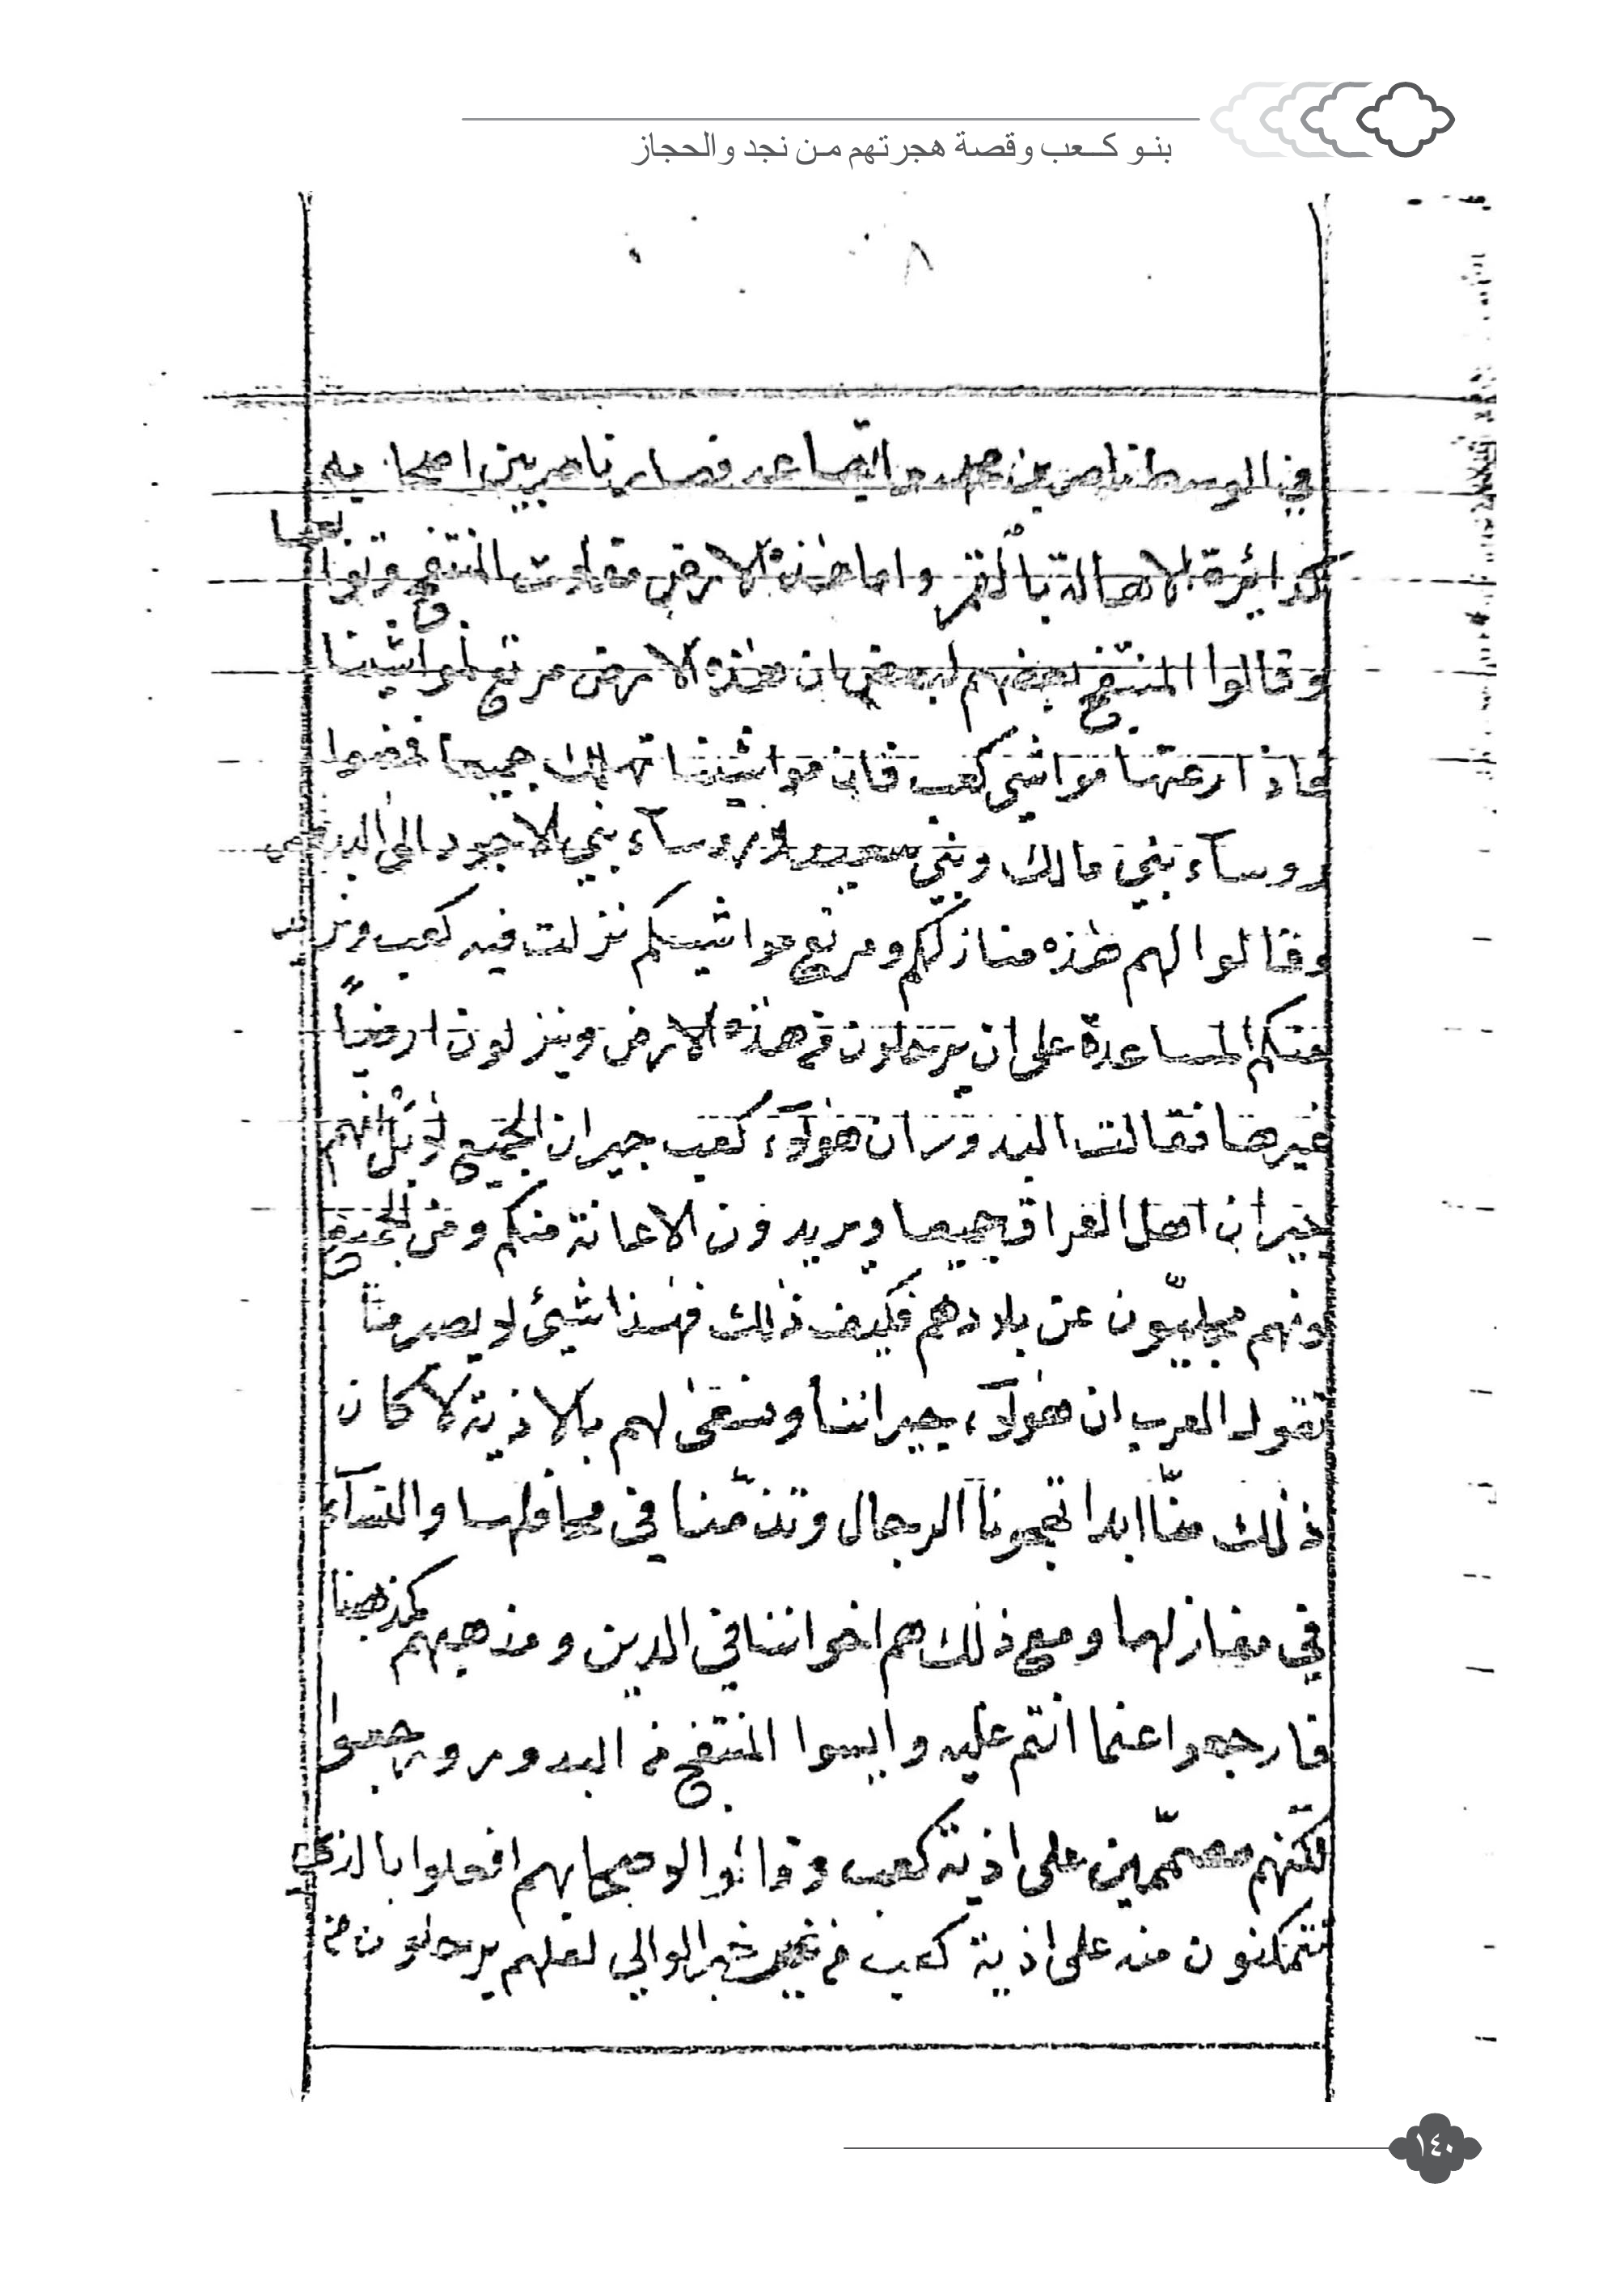 بنو كعب وقصة هجرتهم من نجد والحجاز
٨
في الوسط ناصر بن محمد وما تصاعد فصار ناصر بين اصحابه
كدائرة الهالة بالقمر واما هٰذه الارض فقلوت المنتفج
وقالوا المنتفج بعضهم لبعض ان هٰذه الارض مرتع لمواشينا
فاذا رعتها مواشي كعب فان مواشينا تهلك جميعا فمضوا
روسآء بني مالك وبني سعيد وروسآء بني الاجود الى البدور
وقالوا لهم هٰذه منازلكم ومرتع مواشيكم نزلت فيه كعب ونريد
منكم المساعدة على ان يرحلون من هذه الارض وينزلون ارضاً
غيرها فقالت البدور ان هٰولآء كعب جيران الجميع لا بل انهم
جيران اهل العراق جميعا ويريدون الاعانة منكم ومن الجميع
ونهم مجليّون عن بلادهم فكيف ذلك فهٰذا شيئ لا يصدر منّا
تقول العرب ان هٰولآء جيراننا ونسعى لهم بالاذية لا كان
ذٰلك منّا ابدا تهجونا الرجال وتذمّنا في محافلها والنسآء
في مغازلها ومع ذلك هم اخواننا في الدين ومذهبهم كمذهبنا
فارجعوا عما انتم عليه وايسوا المنتفج من البدور ورجعوا
لكنهم مصمّمين على اذية كعب وقالوا لاصحابهم افعلوا بالذي
تتمكنون منه على اذية كعب من غير خبر الوالي لعلهم يرحلون من
١٤٠